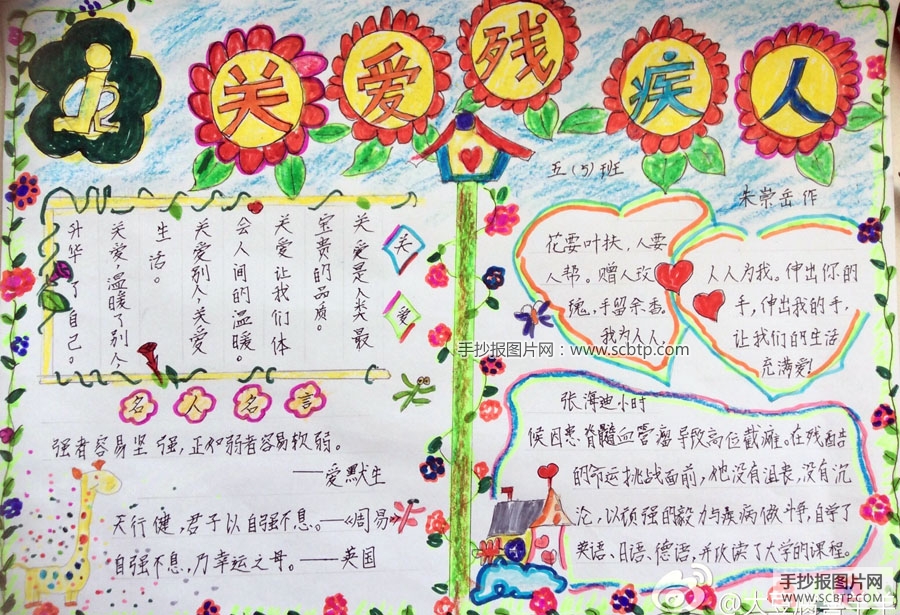 关爱残疾人
五(5)班
朱崇岳作
关爱
关爱是人类最
宝贵的品质。
关爱让我们体
会人间的温暖。
关爱别人,关爱
生活。
关爱温暖了别人,
升华了自己。
花要叶扶,人要
人帮。赠人玫
瑰,手留余香。
我为人人,
人人为我。伸出你的
手,伸出我的手,
让我们的生活
充满爱!
手抄报图片网:www.scbtp.com
名人名言
强者容易坚强,正如弱者容易软弱。
——爱默生
天行健,君子以自强不息。——《周易》
自强不息,乃幸运之母。——英国
张海迪小时
候因患脊髓血管瘤导致高位截瘫。在残酷
的命运挑战面前,他没有沮丧,没有沉
沦,以顽强的毅力与疾病做斗争,自学了
英语、日语、德语,并攻读了大学的课程。
手抄报图片网
WWW.SCBTP.COM